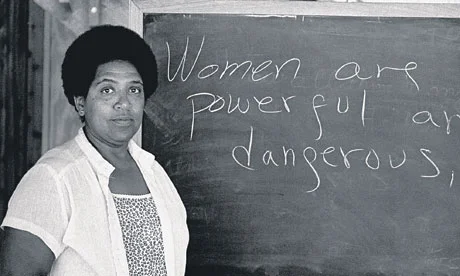 Women are
powerful an
dangerous,